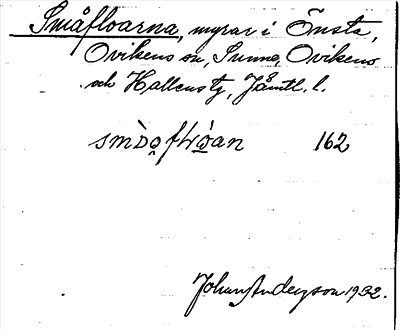 Småfloarna, myrar i Önsta,
Ovikens sn, Sunne, Ovikens
och Hallens tg, Jämtl. l.
162
Johan Anderson 1932.